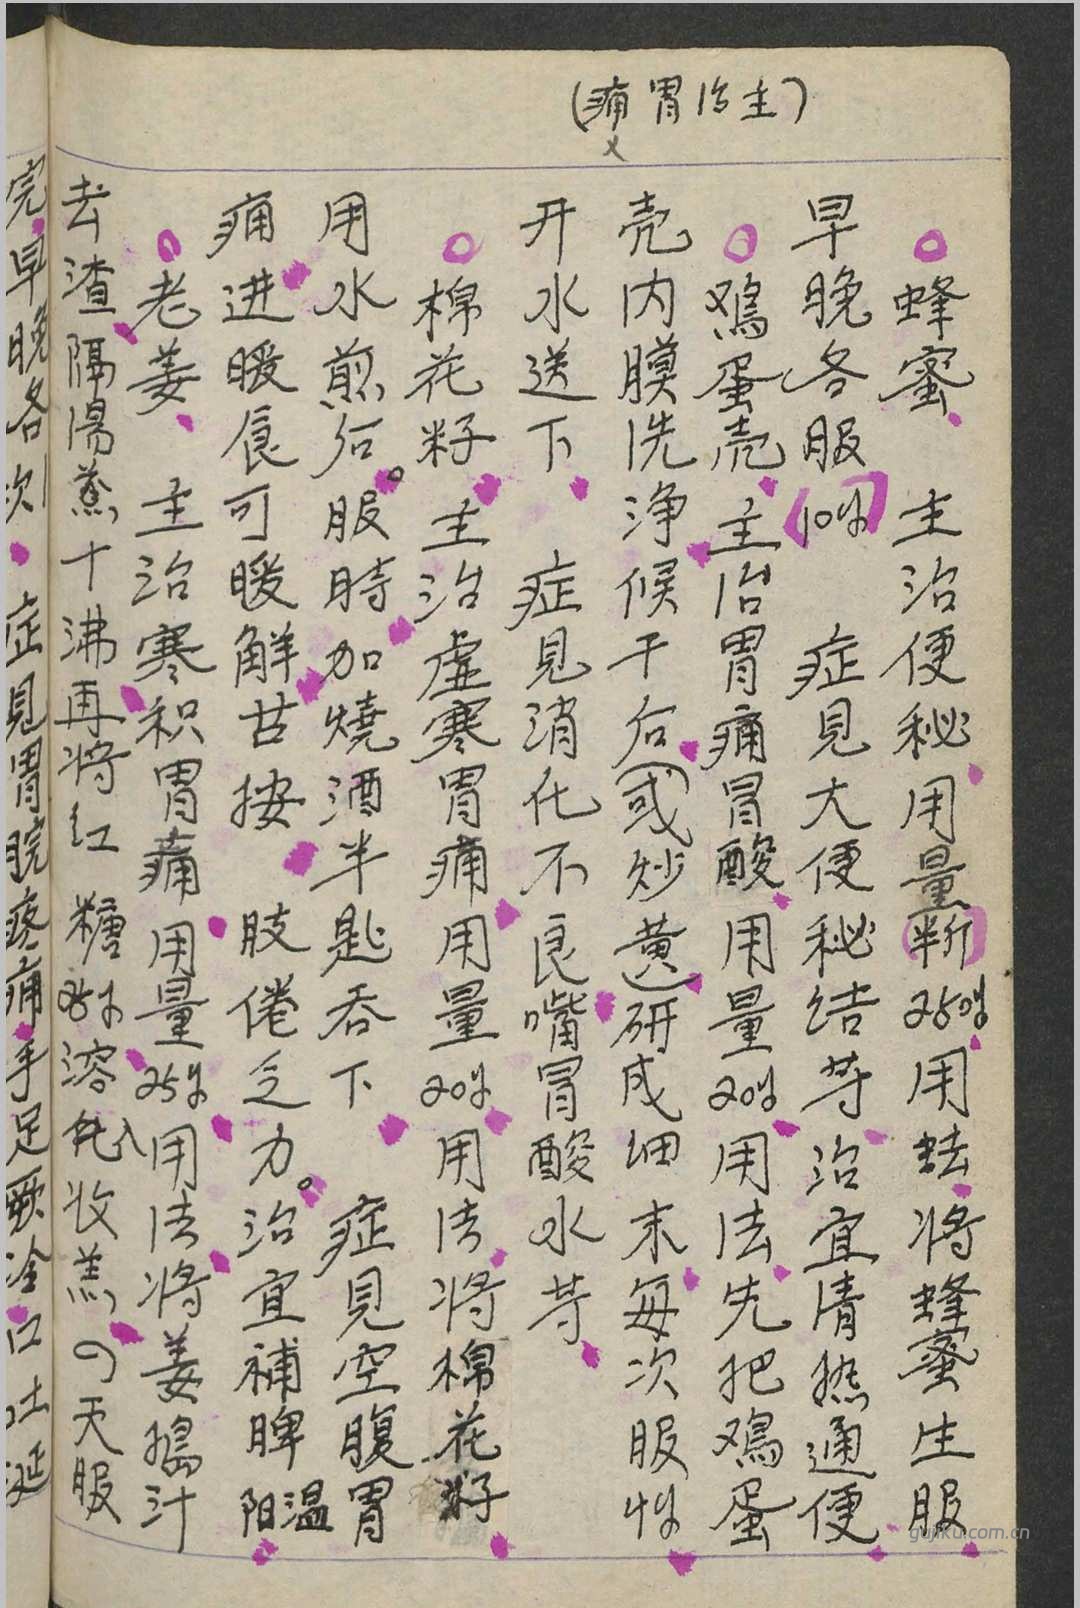 (痛胃治主)
蜂蜜 主治便秘用量半斤250g用法将蜂蜜生服
早晚各服10g 症见大便秘结等治宜清热通便
鸡蛋壳主治胃痛冒酸用量20g用法先把鸡蛋
壳内膜洗净候干后(或炒黄)研成细末每次服
开水送下 症见消化不良嘴冒酸水等
棉花籽主治虚寒胃痛用量20g用法将棉花籽
用水煎后。服時加燒酒半匙吞下 症見空腹胃
痛进暖食可暖解甘按 肢倦乏力。治宜補脾温阳
老姜 主治寒积胃痛用量25g用法将姜搗汁
去渣隔湯蒸十沸再将红糖25g溶化入收蒸の天服
完早晚各次 症見胃脘疼痛手足厥冷口吐涎
gujiku.com.cn